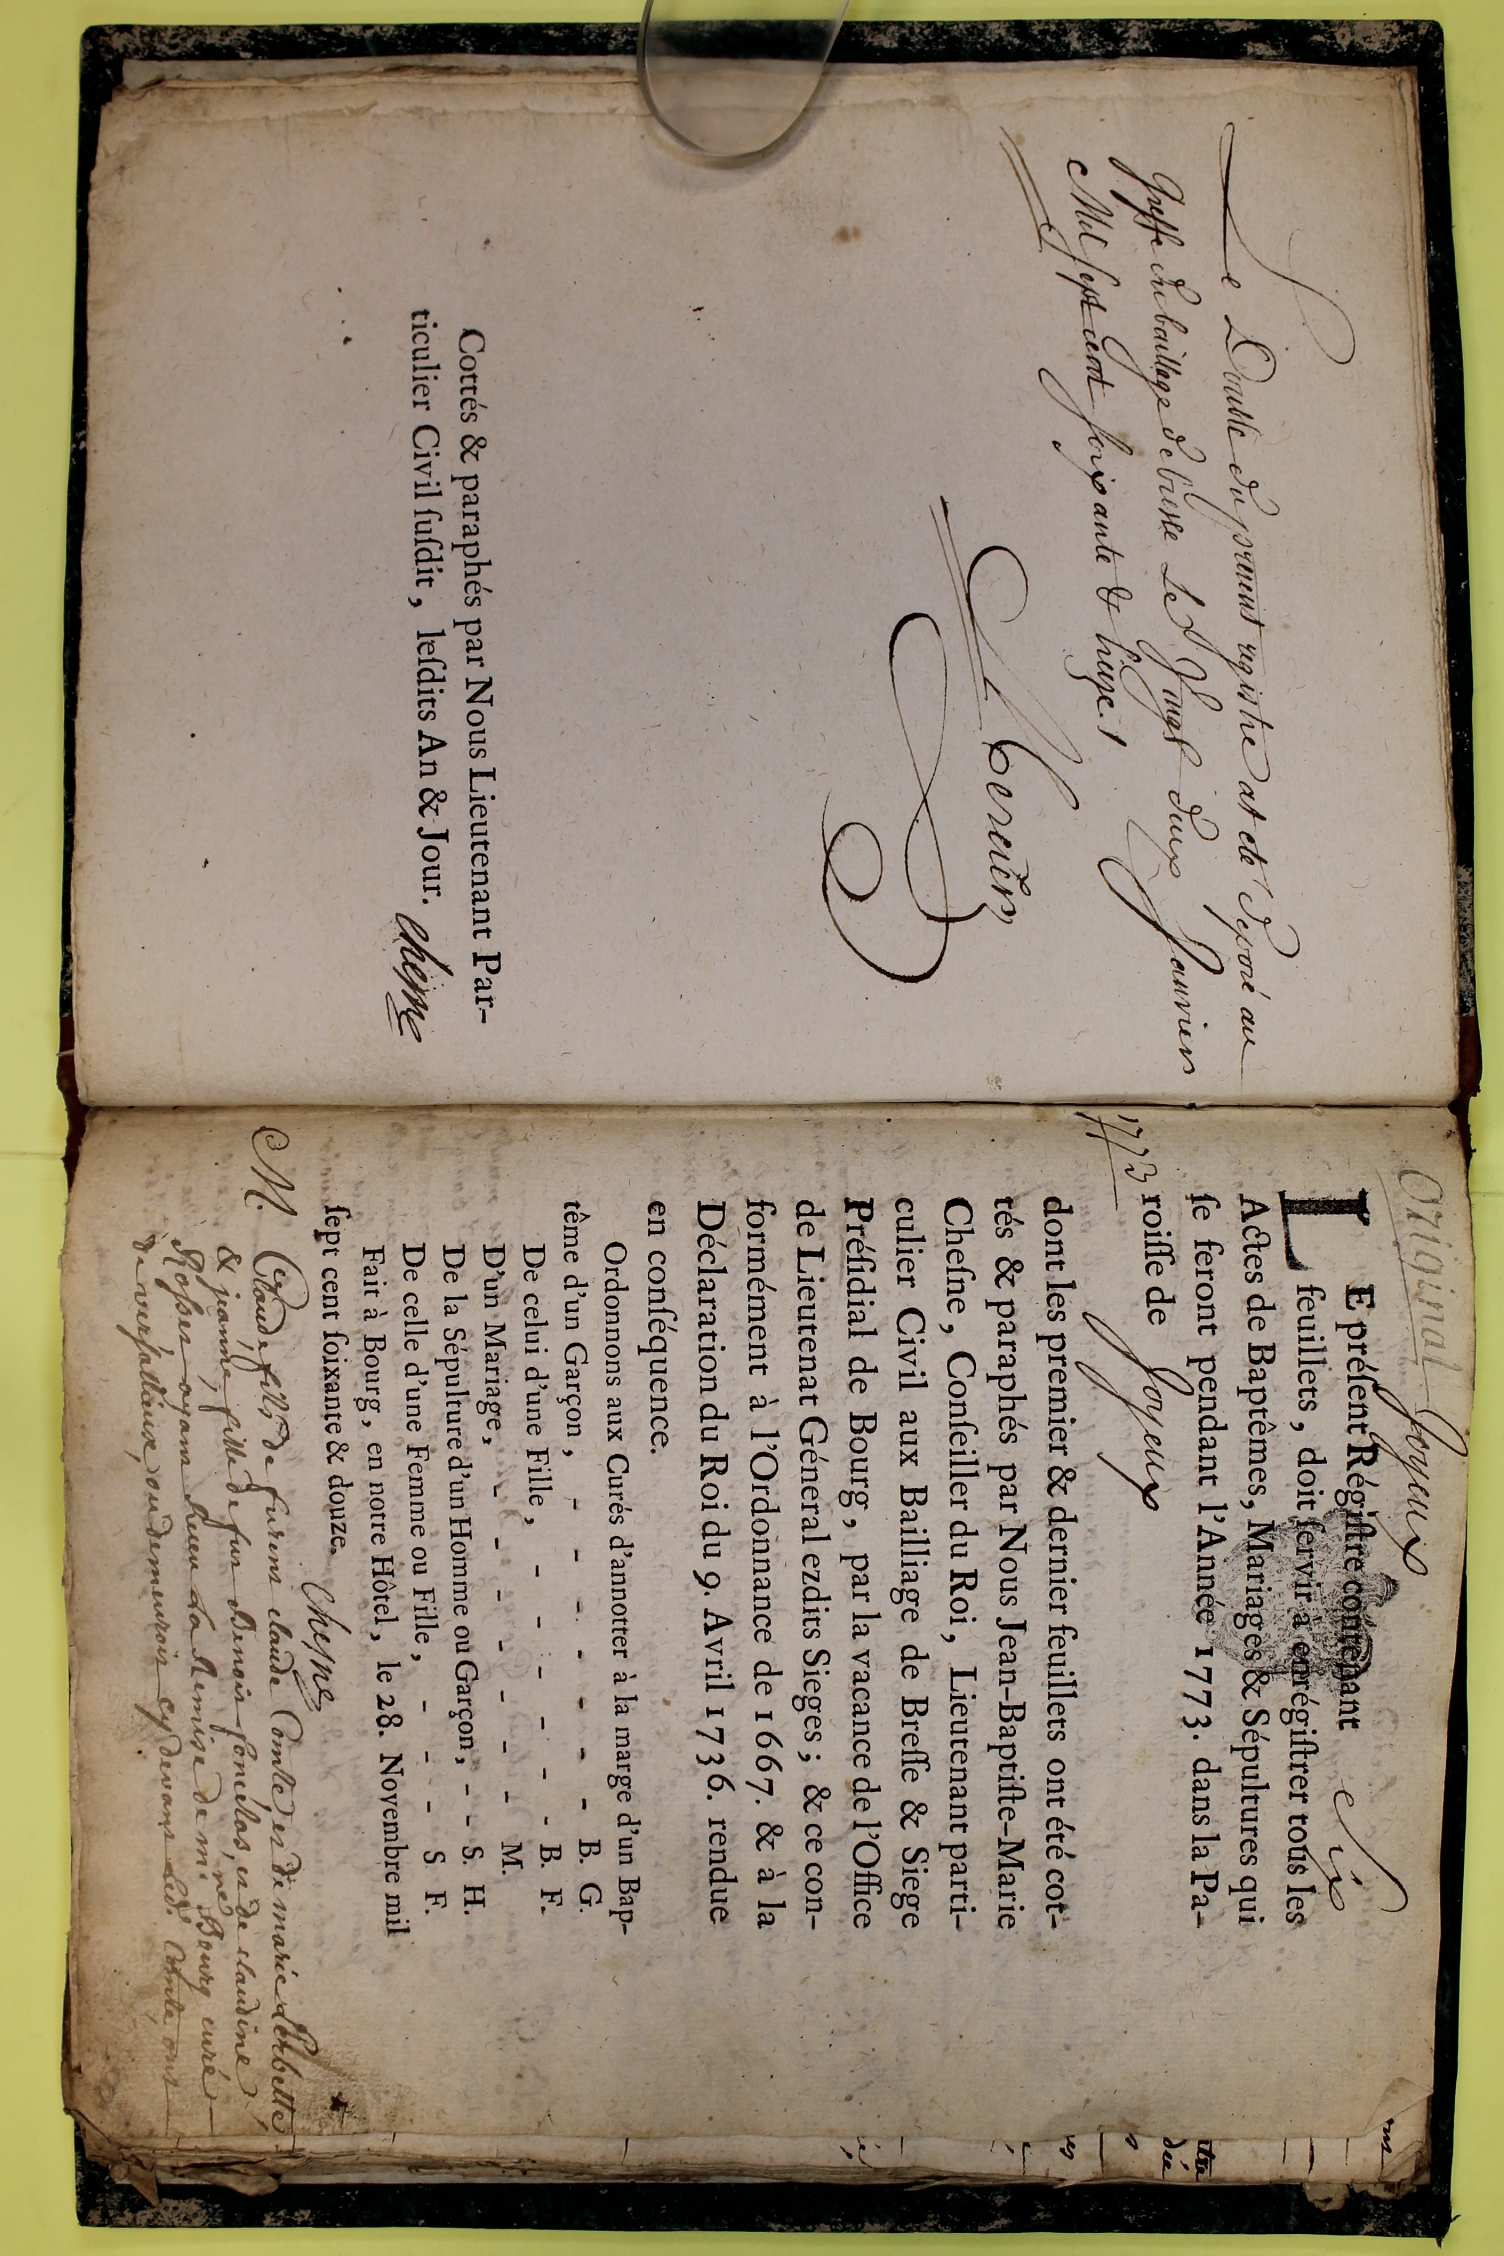 Le Double du present registre at ete deposé au
Greffe du bailliage de bresse Le Vingt deux Janvier
Mil sept cent soixante & treize.
Cottés & paraphés par Nous Lieutenant Par-
ticulier Civil ſuſdit, leſdits An & Jour. Cheſne
Original
Joyeux
LE préſent Régiſtre contenant Six
feuillets, doit ſervir à enrégiſtrer tous les
Actes de Baptêmes, Mariages & Sépultures qui
ſe feront pendant l'Année 1773. dans la Pa-
1773 roiſſe de Joyeux
dont les premier & dernier feuillets ont été cot-
tés & paraphés par Nous Jean-Baptiſte-Marie
Cheſne, Conſeiller du Roi, Lieutenant parti-
culier Civil aux Bailliage de Breſſe & Siege
Préſidial de Bourg, par la vacance de l'Office
de Lieutenat Géneral ezdits Sieges; & ce con-
formément à l'Ordonnance de 1667. & à la
Déclaration du Roi du 9. Avril 1736. rendue
en conſéquence.
Ordonnons aux Curés d'annotter à la marge d'un Bap-
tême d'un Garçon, - - - - - - B. G.
De celui d'une Fille, - - - - - - B. F.
D'un Mariage, - - - - - - M.
De la Sépulture d'un Homme ou Garçon, - - S. H.
De celle d'une Femme ou Fille, - - - S F.
Fait à Bourg, en notre Hôtel, le 28. Novembre mil
ſept cent ſoixante & douze. Cheſne
M. Claude fils de furent claude Comte, et de marie Perbette
& jeanne, fille de feu Benoit foncelas, et de claudine
Rosset ayant Receu La Remise de mr. Bourg curé
de versailleux, ou demeuroit cy devant led. Comte, ont